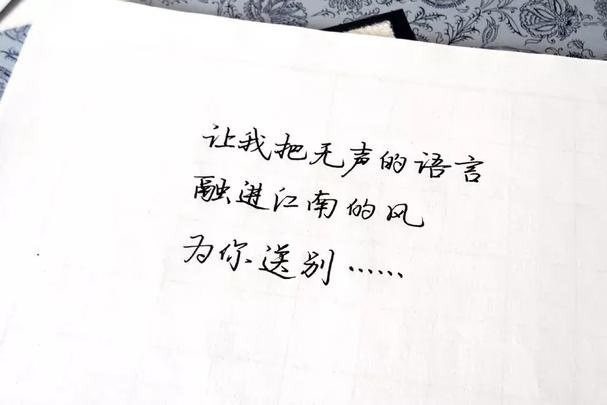 让我把无声的语言
融进江南的风
为你送别……